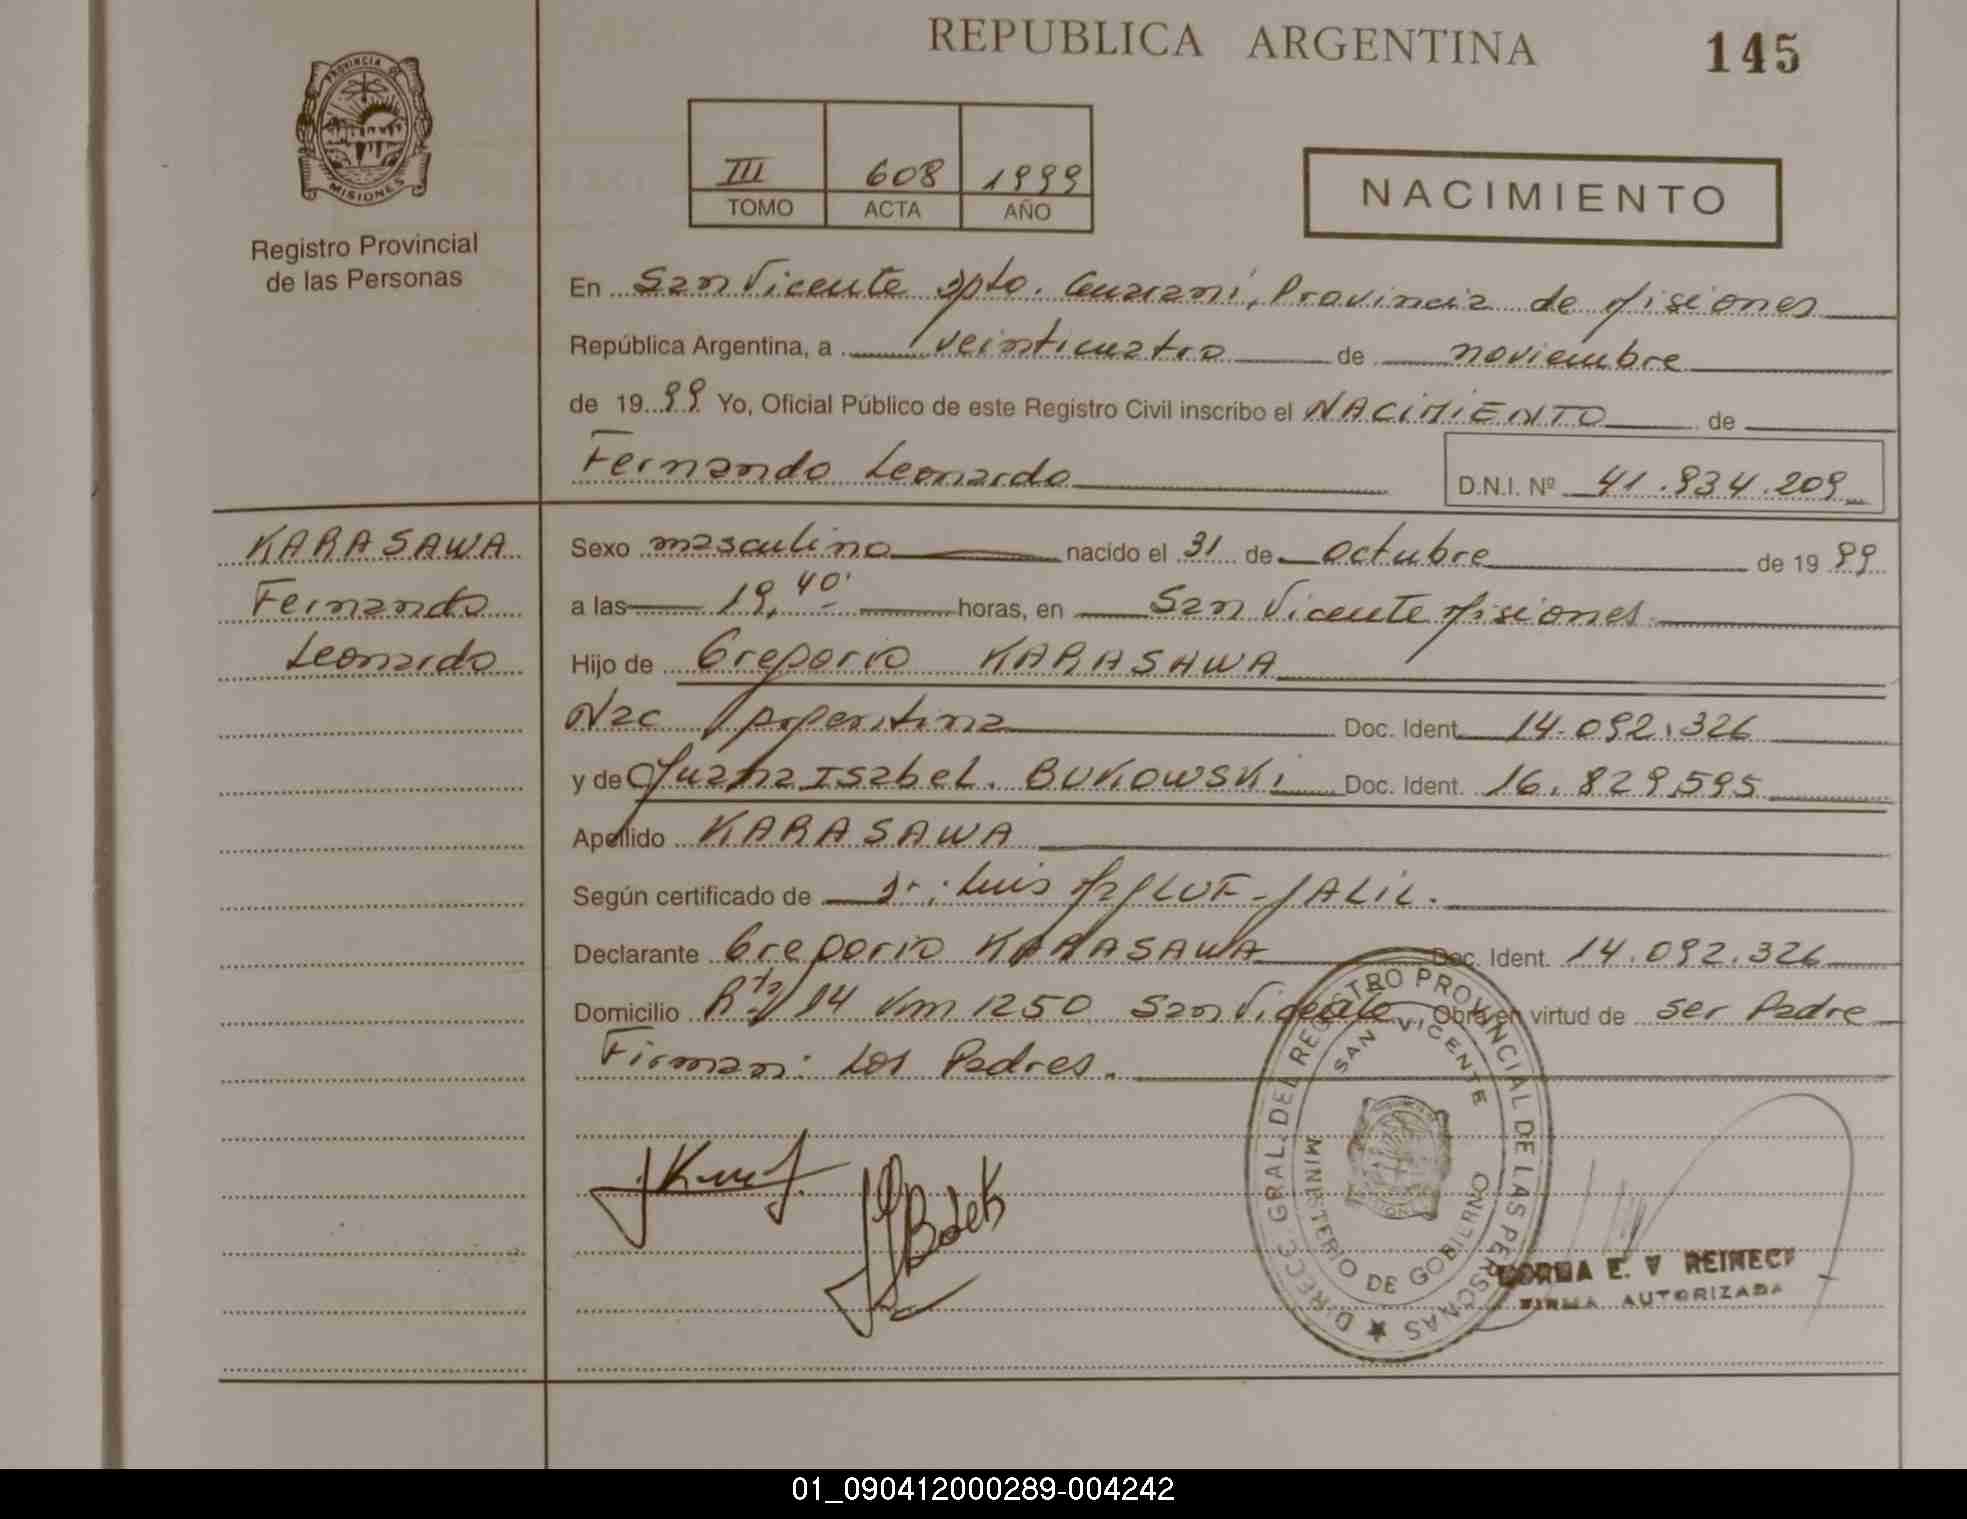 REPUBLICA ARGENTINA
145
PROVINCIA DE
MISIONES
Registro Provincial
de las Personas
III 608 1999
TOMO ACTA AÑO
NACIMIENTO
En San Vicente Dpto. Guaraní, Provincia de Misiones
República Argentina, a veinticuatro de noviembre
de 1999 Yo, Oficial Público de este Registro Civil inscribo el NACIMIENTO de
Fernando Leonardo
D.N.I. Nº 41.934.209
KARASAWA
Fernando
Leonardo
Sexo masculino nacido el 31 de octubre de 1999
a las 19,40' horas, en San Vicente Misiones
Hijo de Gregorio KARASAWA
Nac Argentina Doc. Ident. 14.092.326
y de Juana Isabel. BUKOWSKi Doc. Ident. 16.829.595
Apellido KARASAWA
Según certificado de Dr. Luis JALIL.
Declarante Gregorio KARASAWA Doc. Ident. 14.092.326
Domicilio Rta 14 Km 1250 San Vicente Obra en virtud de ser Padre
Firman: Los Padres.
DIRECC. GRAL. DEL REGISTRO PROVINCIAL DE LAS PERSONAS
SAN VICENTE
MINISTERIO DE GOBIERNO
E. V REINECK
FIRMA AUTORIZADA
01_090412000289-004242